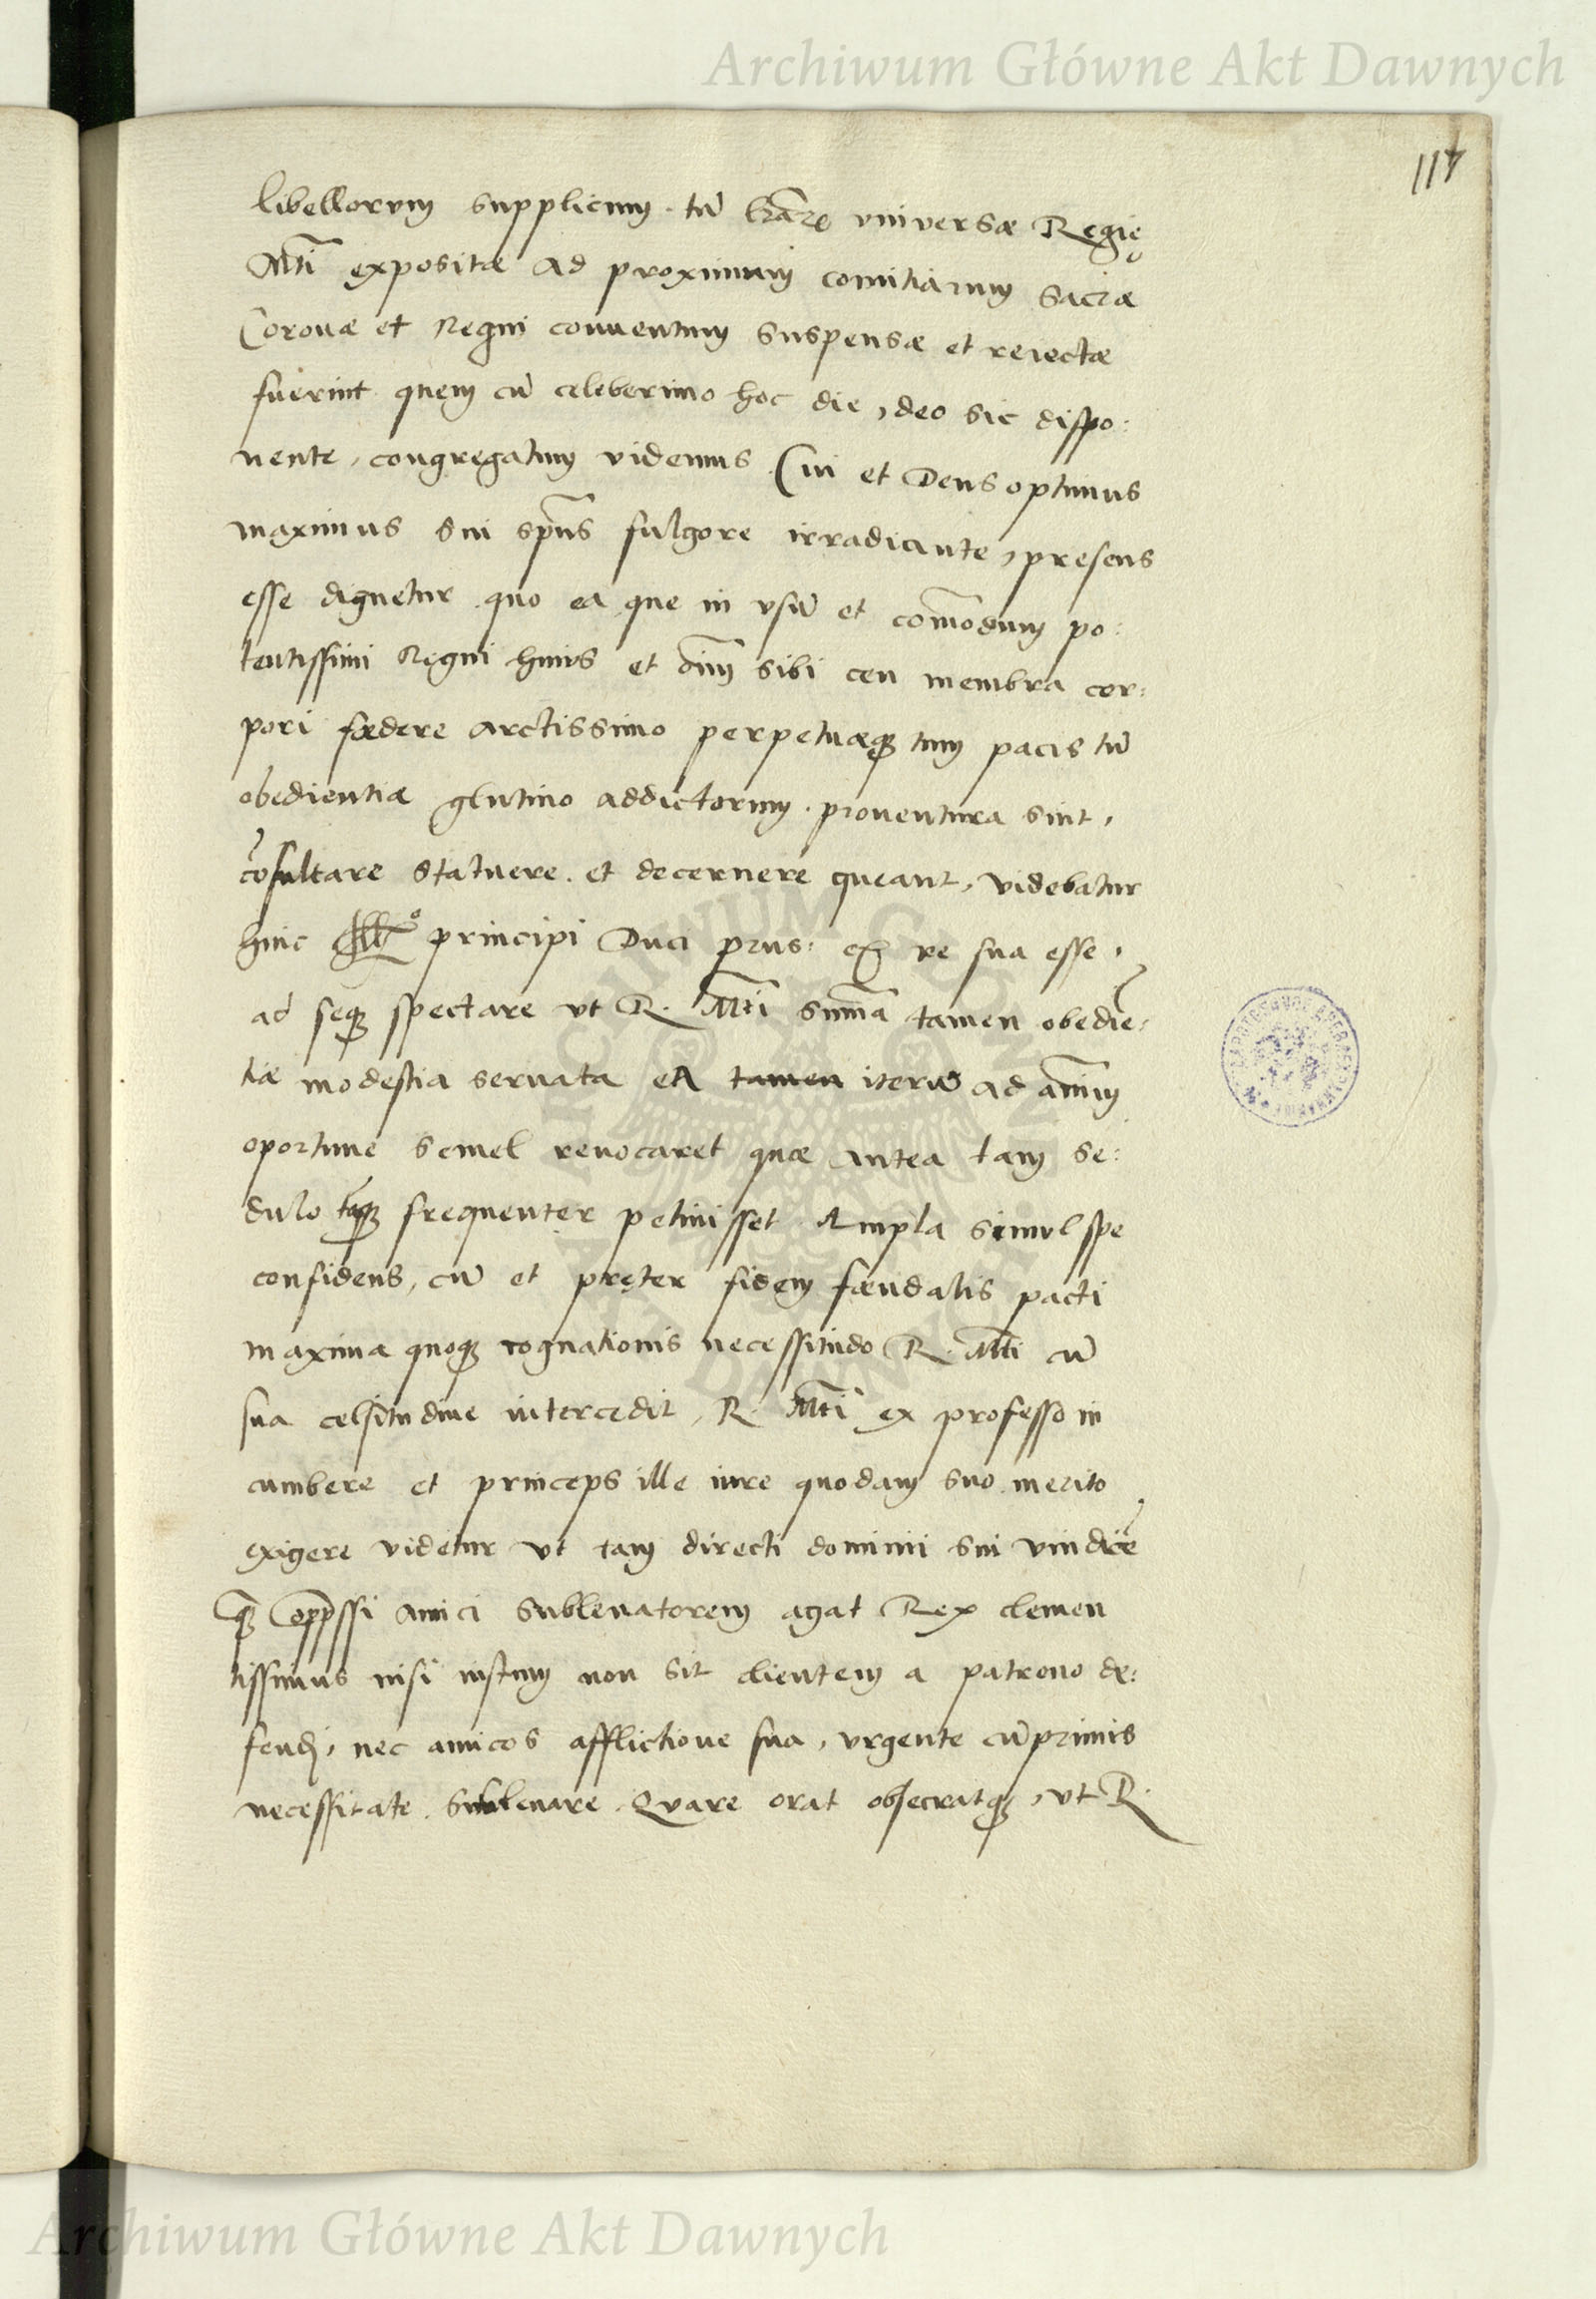 Archiwum Główne Akt Dawnych
117
libellorum supplicum. tū lr̄arū vniversæ Regię
Mti̅ expositæ ad proximum comitiarum sacræ
Coronæ et Regni conuentum suspensæ et reiectæ
fuerint quem cū celeberimo hoc die, deo sic dispo:
nente, congregatum videmus Cui et Deus optimus
maximus sui sp̄us fulgore irradiante, presens
esse dignetur quo ea que in vsū et com̄odum po:
tentissimi Regni huius et oīm sibi ceu membra cor:
pori fœdere arctissimo perpetuæq; tum pacis tū
obedientiæ glutino addictorum. prouentura sint,
cōsultare statuere. et decernere queant, videbatur
huic Illo principi Duci prus: ex re sua esse,
ad seq; spectare vt R. Mti̅ sum̄a tamen obediē:
tiæ modestia seruata ea tamen iterū ad anīum
oportune semel reuocaret quæ antea tam se:
dulo tāq; frequenter petiuisset Ampla simul spe
confidens, cū et pręter fidem fœudalis pacti
maxima quoq; cognationis necessitudo R. Mti̅ cū
sua celsitudine intercedit, R. Mti̅ ex professo in
cumbere et princeps ille iure quodam suo merito
exigere videtur vt tam directi dominii sui vindicē
q̄; opp̄ssi amici subleuatorem agat Rex clemen
tissimus nisi iustum non sit clientem a patrono de:
fendi, nec amicos afflictione sua, vrgente cūprimis
necessitate subleuare. Quare orat obsecratq;, vt R.
Archiwum Główne Akt Dawnych